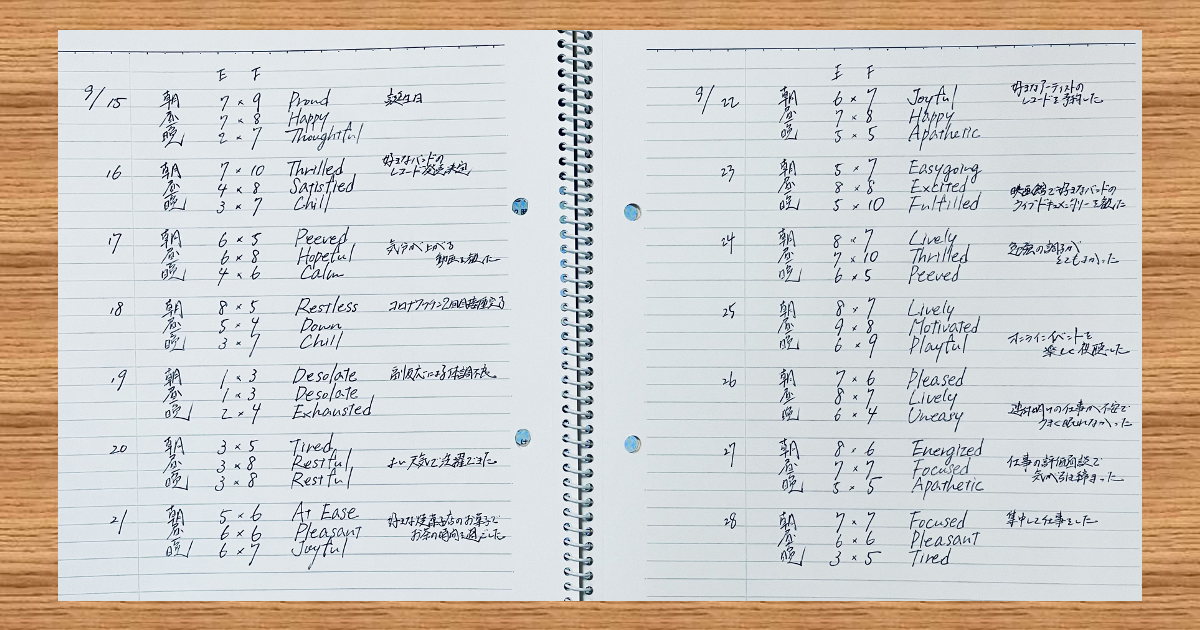 E F
9/15 朝 7 × 9 Proud 誕生日
昼 7 × 8 Happy
晩 2 × 7 Thoughtful
16 朝 7 × 10 Thrilled 好きなバンドの
レコード発売決定
昼 4 × 8 Satisfied
晩 3 × 7 Chill
17 朝 6 × 5 Peeved
昼 6 × 8 Hopeful 気分が上がる
動画を観た
晩 4 × 6 Calm
18 朝 8 × 5 Restless コロナワクチン2回目接種完了
昼 5 × 4 Down
晩 3 × 7 Chill
19 朝 1 × 3 Desolate 副反応による体調不良
昼 1 × 3 Desolate
晩 2 × 4 Exhausted
20 朝 3 × 5 Tired
昼 3 × 8 Restful よい天気で洗濯できた
晩 3 × 8 Restful
21 朝 5 × 6 At Ease 好きな焼菓子店のお菓子で
昼 6 × 6 Pleasant お茶の時間を過ごした
晩 6 × 7 Joyful
E F
9/22 朝 6 × 7 Joyful 好きなアーティストの
レコードを予約した
昼 7 × 8 Happy
晩 5 × 5 Apathetic
23 朝 5 × 7 Easygoing
昼 8 × 8 Excited 映画館で好きなバンドの
晩 5 × 10 Fulfilled ライブドキュメンタリーを観た
24 朝 8 × 7 Lively 勉強の調子が
昼 7 × 10 Thrilled とてもよかった
晩 6 × 5 Peeved
25 朝 8 × 7 Lively
昼 9 × 8 Motivated
晩 6 × 9 Playful オンラインイベントを
楽しく視聴した
26 朝 7 × 6 Pleased
昼 8 × 7 Lively
晩 6 × 4 Uneasy 連休明けの仕事が不安で
うまく眠れなかった
27 朝 8 × 6 Energized
昼 7 × 7 Focused 仕事の評価面談で
気が引き締まった
晩 5 × 5 Apathetic
28 朝 7 × 7 Focused 集中して仕事をした
昼 6 × 6 Pleasant
晩 3 × 5 Tired